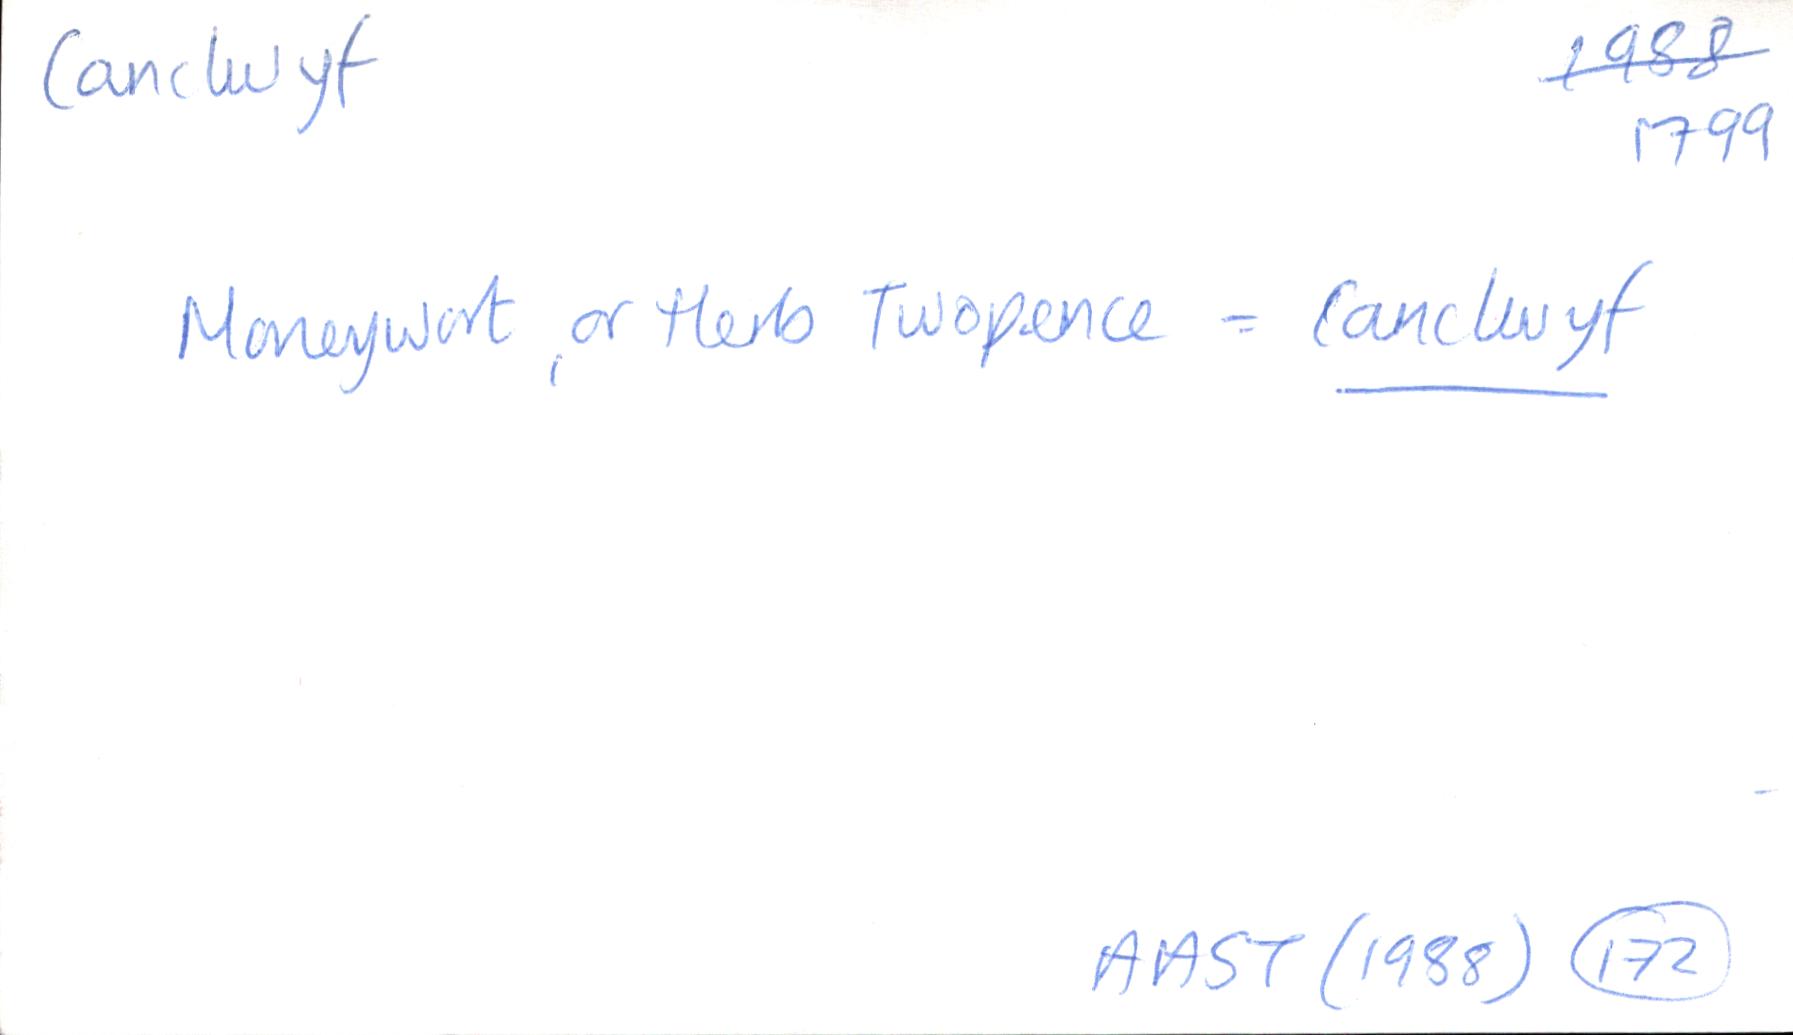 Canclwyf
1988
1799
Moneywort, or Herb Twopence = Canclwyf
AAST (1988) 172